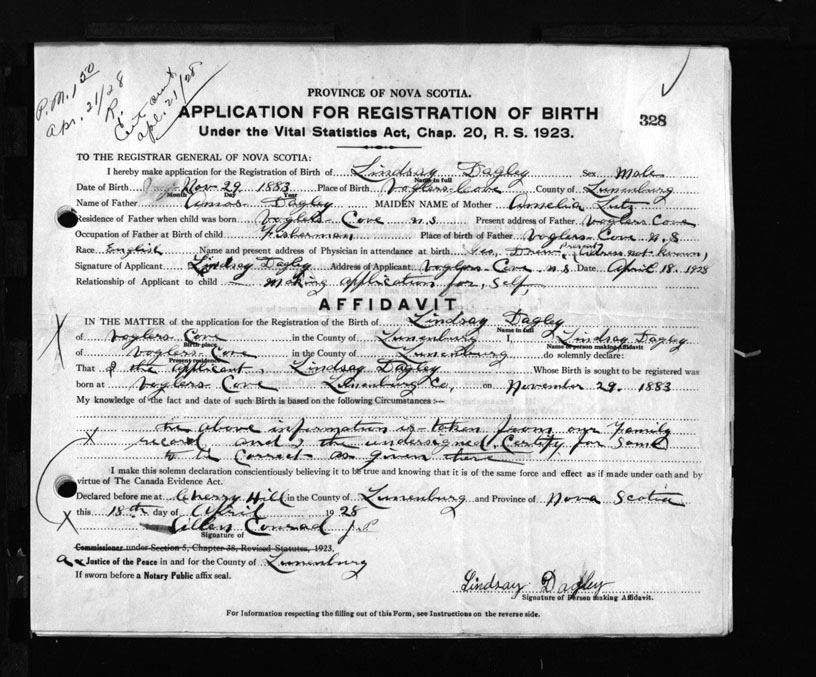 P.M. 1 50
Apr. 21/28
R.
Cert. sent.
apl. 21/28
PROVINCE OF NOVA SCOTIA.
APPLICATION FOR REGISTRATION OF BIRTH
328
Under the Vital Statistics Act, Chap. 20, R. S. 1923.
TO THE REGISTRAR GENERAL OF NOVA SCOTIA:
I hereby make application for the Registration of Birth of Lindsay Dagley Sex Male
Name in full
Date of Birth Nov. 29 1883 Place of Birth Voglers Cove County of Lunenburg
Month Day Year
Name of Father Amos Dagley MAIDEN NAME of Mother Amelia Lutz
Residence of Father when child was born Voglers Cove N.S Present address of Father Voglers Cove
Occupation of Father at Birth of child Fisherman Place of birth of Father Voglers Cove N.S
Race English Name and present address of Physician in attendance at birth Geo. Drew (Present address not known)
Signature of Applicant Lindsay Dagley Address of Applicant Voglers Cove N.S Date April 18. 1928
Relationship of Applicant to child Making Application for Self
AFFIDAVIT
IN THE MATTER of the application for the Registration of the Birth of Lindsay Dagley
Name in full
of Voglers Cove in the County of Lunenburg I, Lindsay Dagley
Birth place Name of person making Affidavit
of Voglers Cove in the County of Lunenburg do solemnly declare:
Present residence
That I the applicant, Lindsay Dagley Whose Birth is sought to be registered was
born at Voglers Cove Lunenburg Co, on November 29. 1883
My knowledge of the fact and date of such Birth is based on the following Circumstances :—
the above information is taken from our Family
record and I the undersigned Certify for same
to be Correct as given there
I make this solemn declaration conscientiously believing it to be true and knowing that it is of the same force and effect as if made under oath and by
virtue of The Canada Evidence Act.
Declared before me at Cherry Hill in the County of Lunenburg and Province of Nova Scotia
this 18th day of April 1928
Conrad J.P
Signature of
Commissioner under Section 5, Chapter 38, Revised Statutes, 1923,
a Justice of the Peace in and for the County of Lunenburg
If sworn before a Notary Public affix seal.
Lindsay Dagley
Signature of Person making Affidavit.
For Information respecting the filling out of this Form, see Instructions on the reverse side.